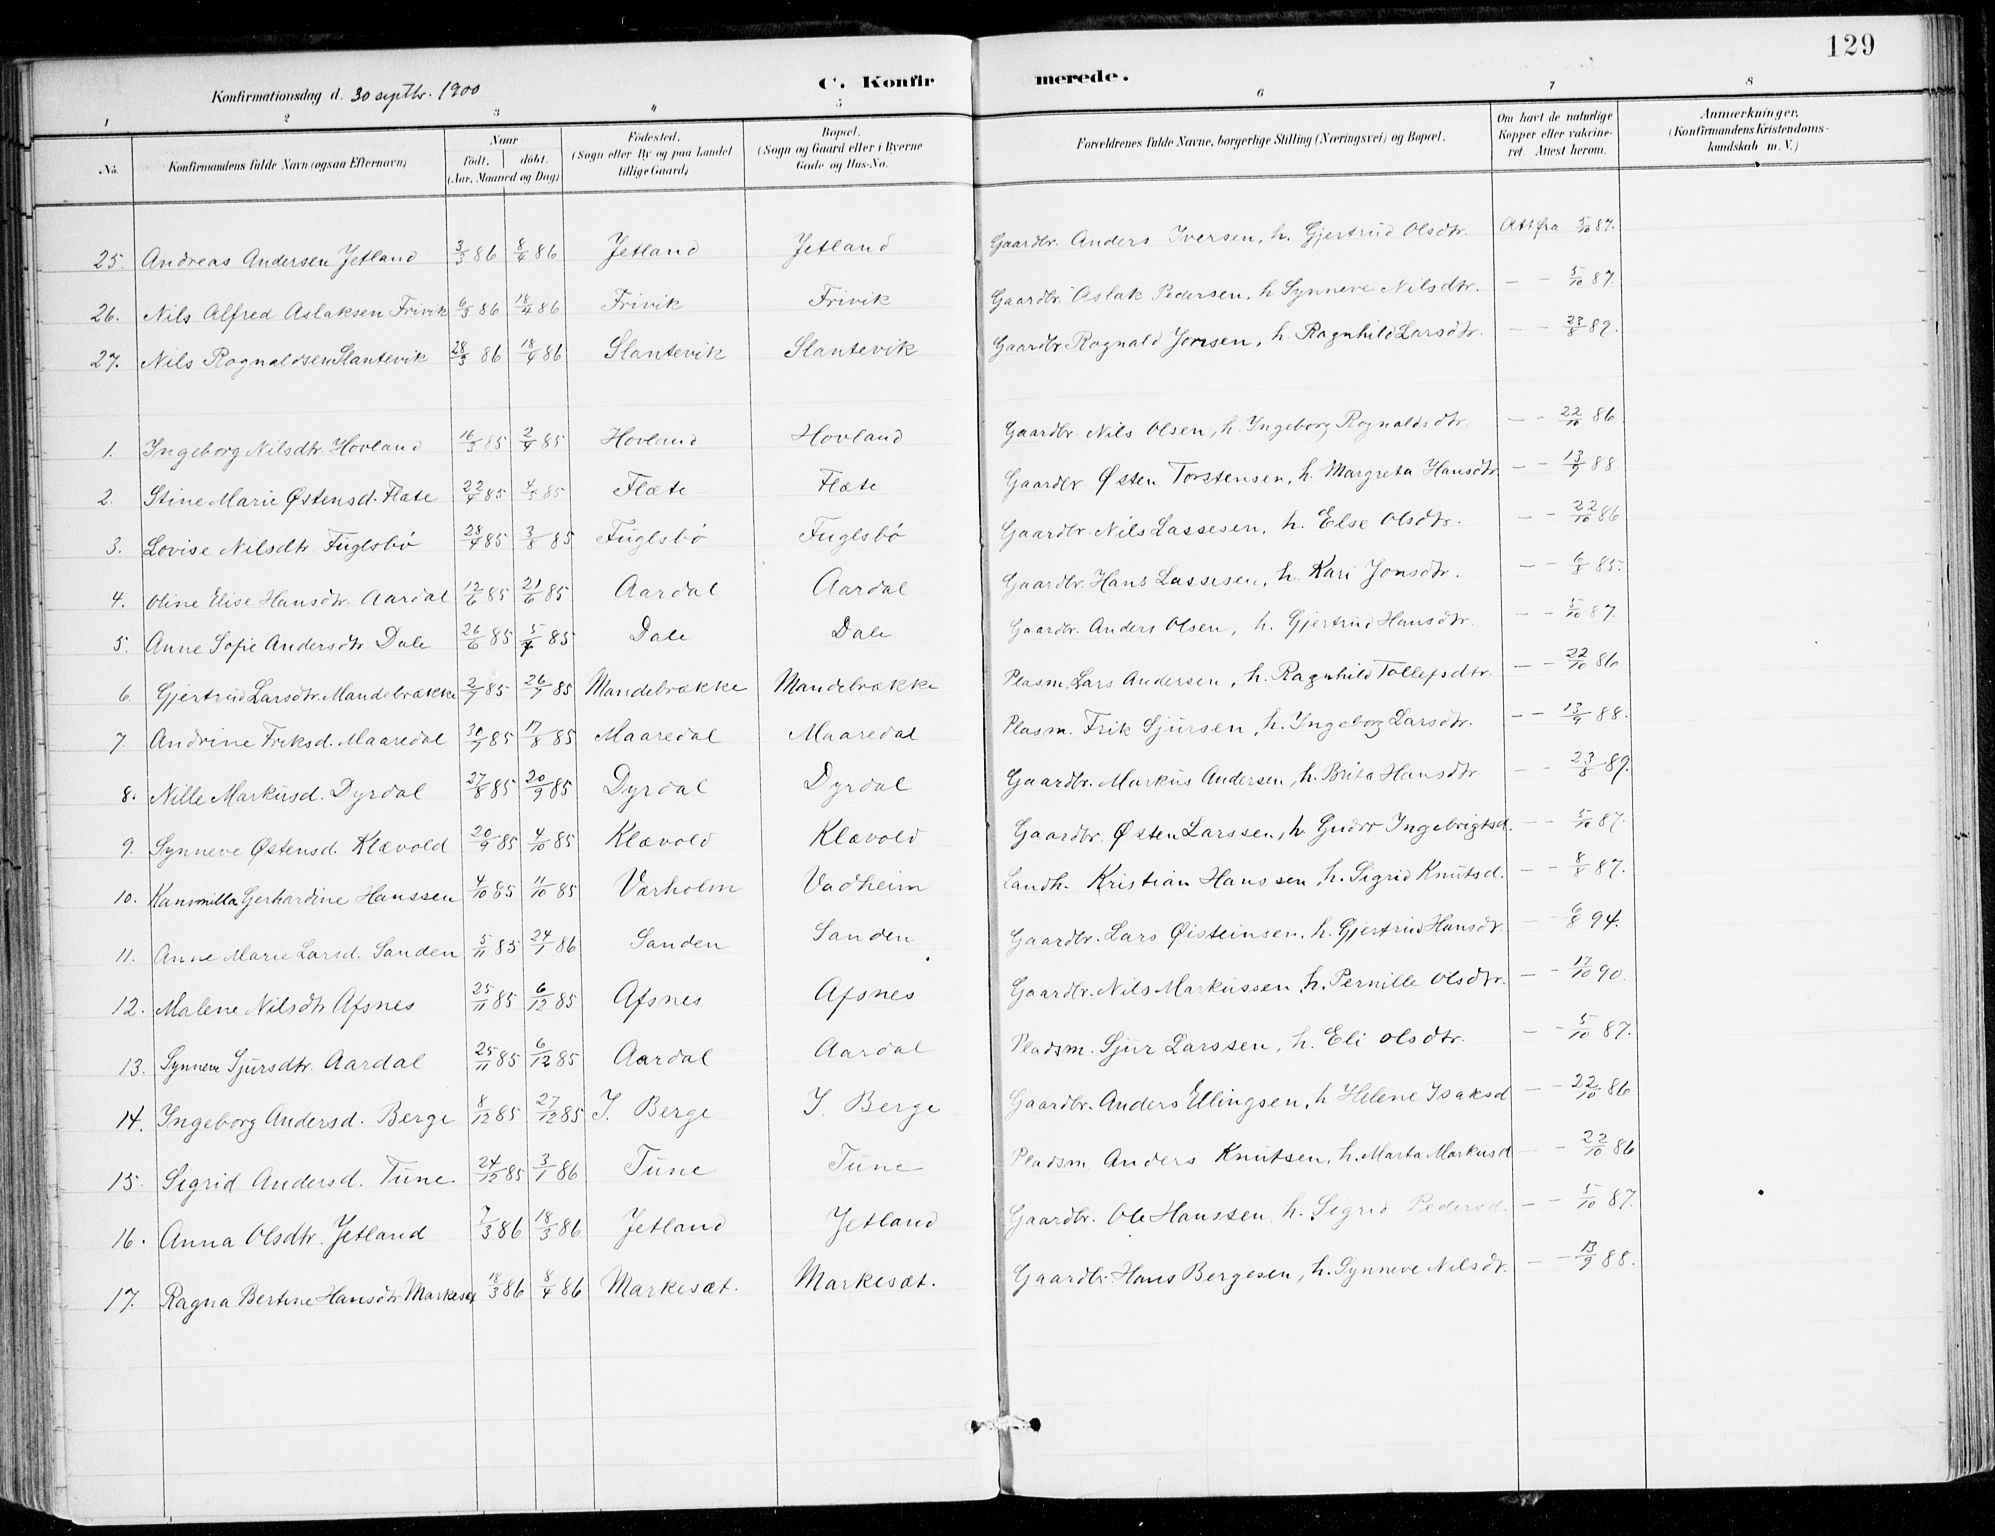 129
Konfirmationsdag d. 30 septbr. 1900
C. Konfir merede.
1 2 3 4 5 6 7 8
No. Konfirmandens fulde Navn (ogsaa Efternavn) Naar født. døbt. (Aar, Maaned og Dag) Fødested. (Sogn eller By og paa Landet tillige Gaard) Bopæl. (Sogn og Gaard eller i Byerne Gade og Hus-No. Forældrenes fulde Navne, borgerlige Stilling (Næringsvei) og Bopæl. Om havt de naturlige Kopper eller vakcineret Attest herom. Anmærkninger. (Konfirmandens Kristendomskundskab m. V.)
25. Andreas Andersen Jetland 3/3 86 8/4 86 Jetland Jetland Gaardbr. Anders Iversen, h. Gjertrud Olsdtr. Att fra 5/10 87.
26. Nils Alfred Aslaksen Frivik 6/3 86 18/4 86 Frivik Frivik Gaardbr. Aslak Pedersen, h. Synneve Nilsdtr. — – 5/10 87.
27. Nils Rognaldsen Slantevik 28/3 86 18/4 86 Slantevik Slantevik Gaardbr Rognald Jonsen, h. Ragnhild Larsdtr. — – 23/8 89.
1. Ingeborg Nilsdtr. Hovland 16/3 85 2/4 85 Hovland Hovland Gaardbr. Nils Olsen, h. Ingeborg Rognaldsdtr. — – 22/10 86
2. Stine Marie Østensd. Flate 22/4 85 4/5 85 Flæte Flæte Gaardbr Østen Torstensen, h. Margreta Hansdtr. — – 13/9 88.
3. Lovise Nilsdtr. Fuglsbø 28/4 85 3/8 85 Fuglsbø Fuglsbø Gaardbr. Nils Lassesen, h. Else Olsdtr. — – 22/10 86
4. Oline Elise Hansdtr. Aardal 12/6 85 21/6 85 Aardal Aardal Gaardbr. Hans Lassesen, h. Kari Jonsdtr. — – 6/8 85.
5. Anne Sofie Andersdtr. Dale 26/6 85 5/ 85 Dale Dale Gaardbr. Anders Olsen, h. Gjertrud Hansdtr. — – 5/10 87.
6. Gjertrud Larsdtr. Mandebrække 2/7 85 26/7 85 Mandebrække Mandebrække Plasm. Lars Andersen, h. Ragnhild Tollefsdtr. — – 22/10 86
7. Andrine Friksd. Maaredal 30/7 85 17/8 85 Maaredal Maaredal Plasm. Frik Sjursen, h. Ingeborg Larsdtr. — – 13/9 88.
8. Nille Markusd. Dyrdal 27/8 85 20/9 85 Dyrdal Dyrdal Gaardbr. Markus Andersen, h. Brita Hansdtr — – 23/8 89.
9. Synneve Østensd. Klævold 20/9 85 4/10 85 Klævold Klævold Gaardbr. Østen Larssen, h. Gudrr Ingebrigtsd. — – 5/10 87.
10. Kammilla Gerhardine Hanssen 4/10 85 11/10 85 Varholm Vadheim Landh. Kristian Hanssen, h. Sigrid Knutsd. — – 8/8 87.
11. Anne Marie Larsd. Sanden 5/11 85 24/1 86 Sanden Sanden Gaardbr. Lars Øisteinsen, h. Gjertrud Hansdr. — – 6/8 94.
12. Malene Nilsdtr Afsnes 25/11 85 6/12 85 Afsnes Afsnes Gaardbr. Nils Markussen, h. Pernille Olsdtr. — – 17/10 90.
13. Synneve Sjursdtr. Aardal 25/11 85 6/12 85 Aardal Aardal Pladsm. Sjur Larssen, h. Eli Olsdtr. — – 5/10 87.
14. Ingeborg Andersd. Berge 8/12 85 27/12 85 I. Berge I. Berge Gaardbr. Anders Ellingsen, h. Helene Isaksd — – 22/10 86
15. Sigrid Andersd. Tune 24/12 85 3/1 86 Tune Tune Pladsm. Anders Knutsen, h. Marta Markusd — – 22/10 86
16. Anna Olsdtr. Jetland 7/3 86 18/3 86 Jetland Jetland Gaardbr. Ole Hanssen h. Sigrid Pedersd. — – 5/10 87.
17. Ragna Bertine Hansdtr Markesæt 18/3 86 8/4 86 Markesæt. Markesæt. Gaardbr. Hans Bergesen, h. Synneve Nilsdtr. — – 13/9 88.